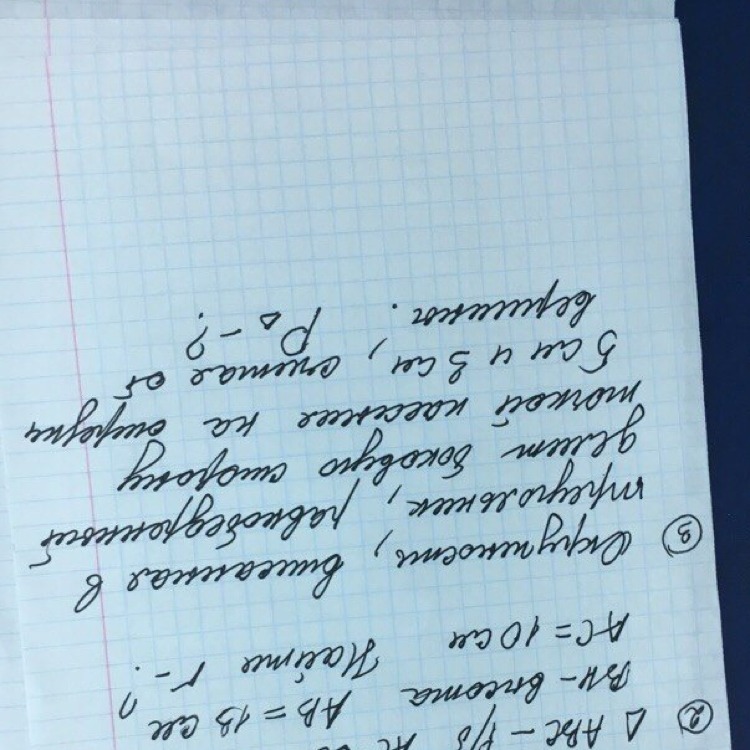 ② △ ABC – р/б АС
BH – высота AB = 13 см
AC = 10 см Найти r – ?
③ Окружность, вписанная в
треугольник, равнобедренный
делит боковую сторону
точкой касания на отрезки
5 см и 3 см, считая от
вершины. P△ – ?